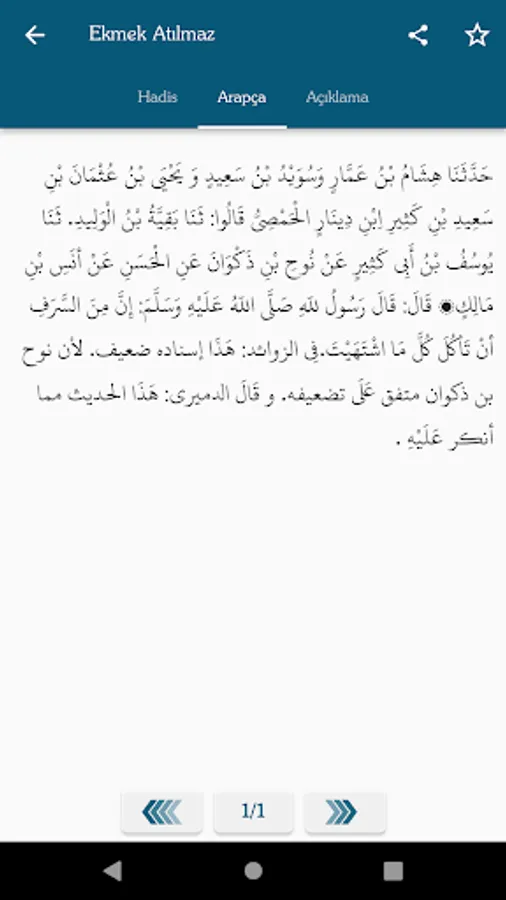 Ekmek Atılmaz
Hadis Arapça Açıklama
حَدَّثَنَا هِشَامُ بْنُ عَمَّارٍ وَسُوَيْدُ بْنُ سَعِيدٍ وَ يَحْيَى بْنُ عُثْمَانَ بْنِ
سَعِيدِ بْنِ كَثِيرِ اِبْنِ دِينَارٍ الْحَمْصِىُّ قَالُوا: ثَنَا بَقِيَّةُ بْنُ الْوَلِيدِ. ثَنَا
يُوسُفُ بْنُ أَبِى كَثِيرٍ عَنْ نُوحِ بْنِ ذَكْوَانَ عَنِ الْحَسَنِ عَنْ أَنَسِ بْنِ
مَالِكٍ◉ قَالَ: قَالَ رَسُولُ للهِ صَلَّى اللهُ عَلَيْهِ وَسَلَّمَ: إِنَّ مِنَ السَّرَفِ
أَنْ تَأْكُلَ كُلَّ مَا اشْتَهَيْتَ.فِى الزوائد: هَذَا إسناده ضعيف. لأن نوح
بن ذكوان متفق عَلَى تضعيفه. و قَالَ الدميرى: هَذَا الحديث مما
أنكر عَلَيْهِ .
1/1